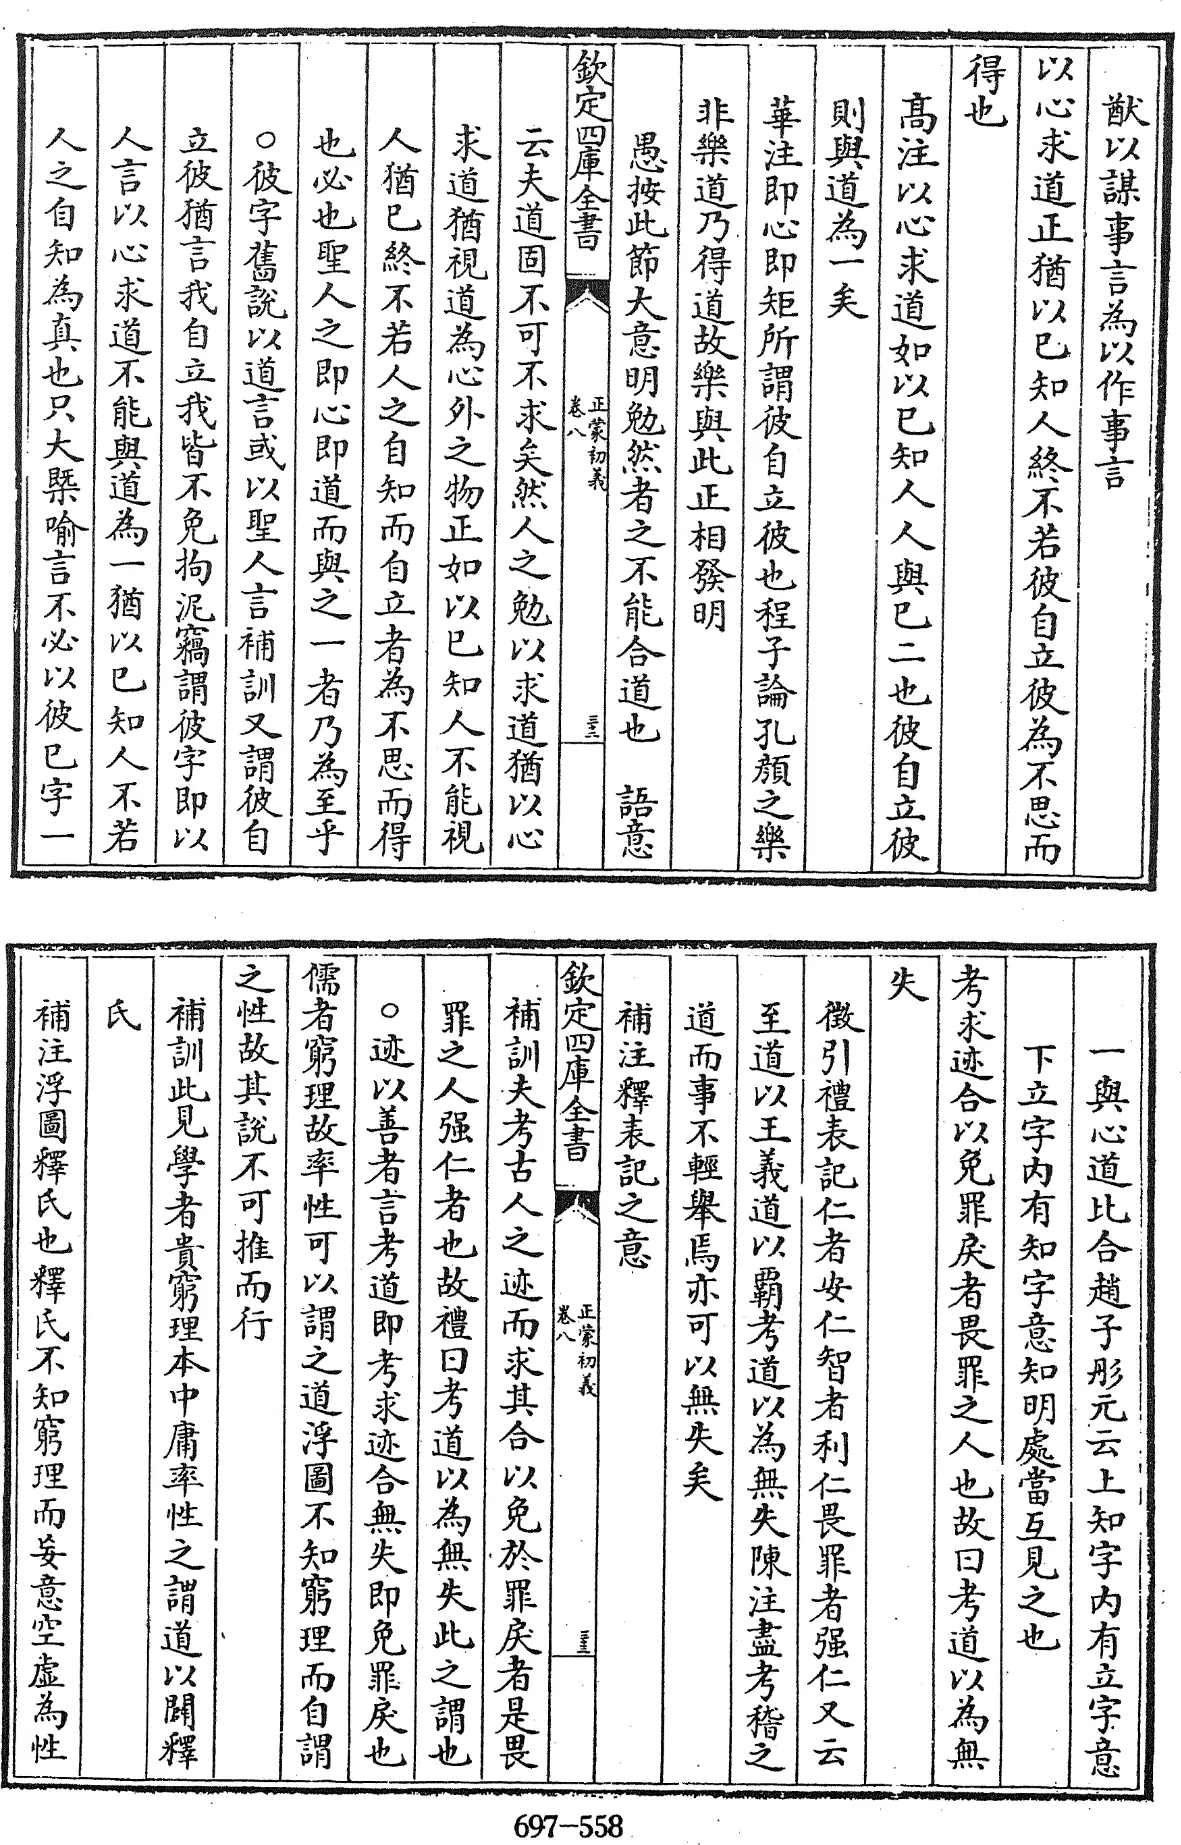 猷以謀事言為以作事言
以心求道正猶以已知人終不若彼自立彼為不思而
得也
高注以心求道如以已知人人與已二也彼自立彼
則與道為一矣
華注即心即矩所謂彼自立彼也程子論孔顔之樂
非樂道乃得道故樂與此正相發明
愚按此節大意明勉然者之不能合道也　語意
欽定四庫全書
正蒙初義
卷八
三二
云夫道固不可不求矣然人之勉以求道猶以心
求道猶視道為心外之物正如以已知人不能視
人猶已終不若人之自知而自立者為不思而得
也必也聖人之即心即道而與之一者乃為至乎
○彼字舊說以道言或以聖人言補訓又謂彼自
立彼猶言我自立我皆不免拘泥竊謂彼字即以
人言以心求道不能與道為一猶以已知人不若
人之自知為真也只大槩喻言不必以彼已字一
一與心道比合趙子彤元云上知字内有立字意
下立字内有知字意知明處當互見之也
考求迹合以免罪戾者畏罪之人也故曰考道以為無
失
徵引禮表記仁者安仁智者利仁畏罪者强仁又云
至道以王義道以覇考道以為無失陳注盡考稽之
道而事不輕舉焉亦可以無失矣
補注釋表記之意
欽定四庫全書
正蒙初義
卷八
三三
補訓夫考古人之迹而求其合以免於罪戾者是畏
罪之人强仁者也故禮曰考道以為無失此之謂也
○迹以善者言考道即考求迹合無失即免罪戾也
儒者窮理故率性可以謂之道浮圖不知窮理而自謂
之性故其說不可推而行
補訓此見學者貴窮理本中庸率性之謂道以闢釋
氏
補注浮圖釋氏也釋氏不知窮理而妄意空虛為性
697-558